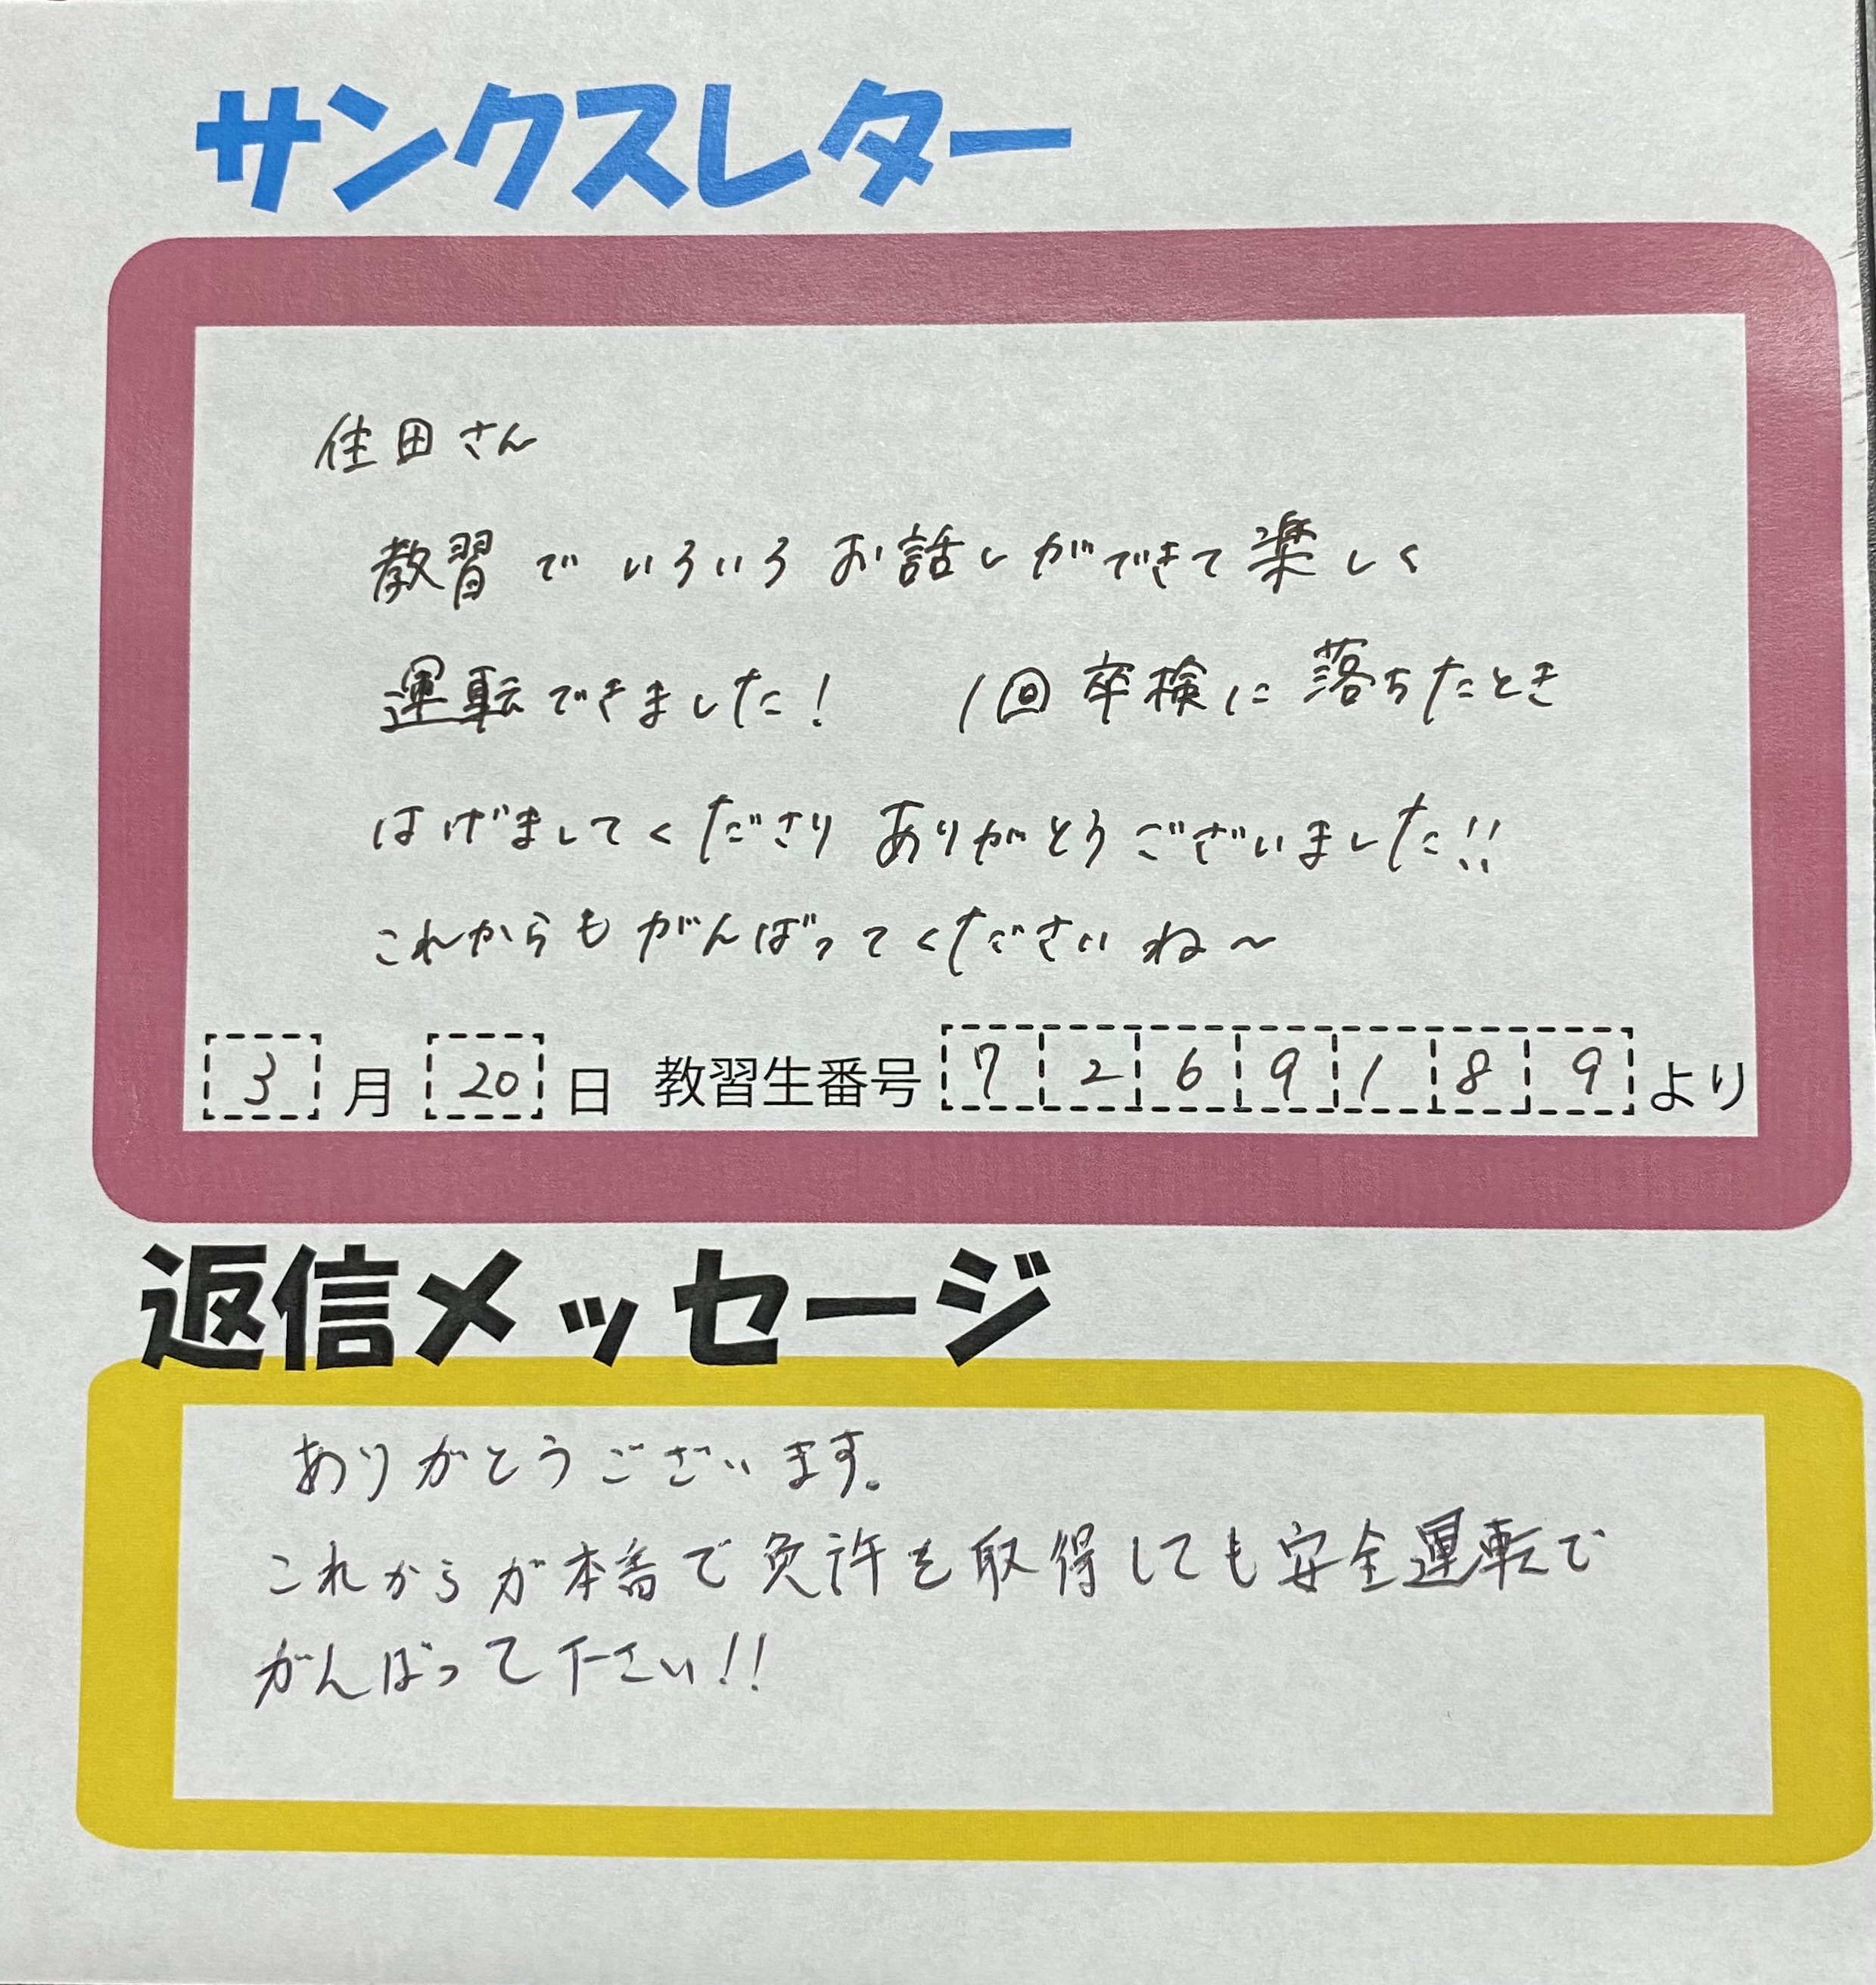 サンクスレター
住田さん
教習でいろいろお話しができて楽しく
運転できました! 1回卒検に落ちたとき
はげましてくださりありがとうございました!!
これからもがんばってくださいね〜
3月20日 教習生番号7269189より
返信メッセージ
ありがとうございます。
これからが本番で免許を取得しても安全運転で
がんばって下さい!!